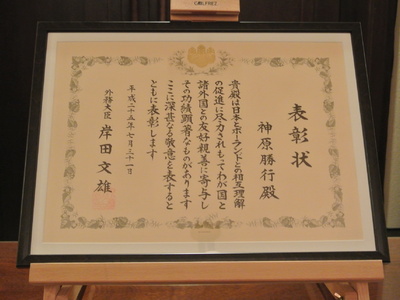 表彰状
神原勝行殿
貴殿は日本とポーランドとの相互理解
の促進に尽力されもってわが国と
諸外国との友好親善に寄与し
その功績顕著なものがあります
ここに深甚なる敬意を表すると
ともに表彰します
平成二十五年七月三十一日
外務大臣 岸田文雄